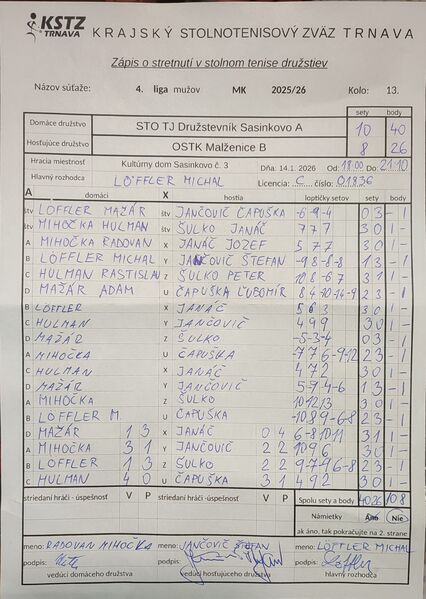 KSTZ TRNAVA KRAJSKÝ STOLNOTENISOVÝ ZVÄZ TRNAVA
Zápis o stretnutí v stolnom tenise družstiev
Názov súťaže: 4. liga mužov MK 2025/26 Kolo: 13.
sety body
Domáce družstvo STO TJ Družstevník Sasinkovo A 10 40
Hosťujúce družstvo OSTK Malženice B 8 26
Hracia miestnosť Kultúrny dom Sasinkovo č. 3 Dňa: 14.1. 2026 Od: 18.00 Do: 21.10
Hlavný rozhodca LÖFFLER MICHAL Licencia: C číslo: 01836
A domáci X hostia loptičky setov sety body
štv LÖFFLER MAŽÁR štv JANČOVIČ ČAPUŠKA -6 -9 -4 0 3 - 1
štv MIHOČKA HULMAN štv ŠULKO JANÁČ 7 7 7 3 0 1 -
A MIHOČKA RADOVAN X JANÁČ JOZEF 5 7 7 3 0 1 -
B LÖFFLER MICHAL Y JANČOVIČ ŠTEFAN -9 8 -8 -8 1 3 - 1
C HULMAN RASTISLAV Z ŠULKO PETER 10 8 -6 7 3 1 1 -
D MAŽÁR ADAM U ČAPUŠKA ĽUBOMÍR 8 4 -10 -14 -9 2 3 - 1
B LÖFFLER X JANÁČ 5 6 3 3 0 1 -
C HULMAN Y JANČOVIČ 4 9 9 3 0 1 -
D MAŽÁR Z ŠULKO -5 -3 -4 0 3 - 1
A MIHOČKA U ČAPUŠKA -7 7 6 -9 -12 2 3 - 1
C HULMAN X JANÁČ 4 7 2 3 0 1 -
D MAŽÁR Y JANČOVIČ -5 7 -4 -6 1 3 - 1
A MIHOČKA Z ŠULKO 10 12 13 3 0 1 -
B LÖFFLER M. U ČAPUŠKA -10 8 9 -6 -8 2 3 - 1
D MAŽÁR 1 3 X JANÁČ 0 4 -6 8 10 11 3 1 1 -
A MIHOČKA 3 1 Y JANČOVIČ 2 2 10 9 6 3 0 1 -
B LÖFFLER 1 3 Z ŠULKO 2 2 9 7 -9 -6 -8 2 3 - 1
C HULMAN 4 0 U ČAPUŠKA 3 1 4 9 2 3 0 1 -
striedaní hráči - úspešnosť V P striedaní hráči - úspešnosť V P Spolu sety a body 40 26 10 8
Námietky Áno Nie
ak áno, tak pokračujte na 2. strane
meno: RADOVAN MIHOČKA meno: JANČOVIČ ŠTEFAN meno: LÖFFLER MICHAL
podpis: podpis: podpis: Löffler
vedúci domáceho družstva vedúci hosťujúceho družstva hlavný rozhodca